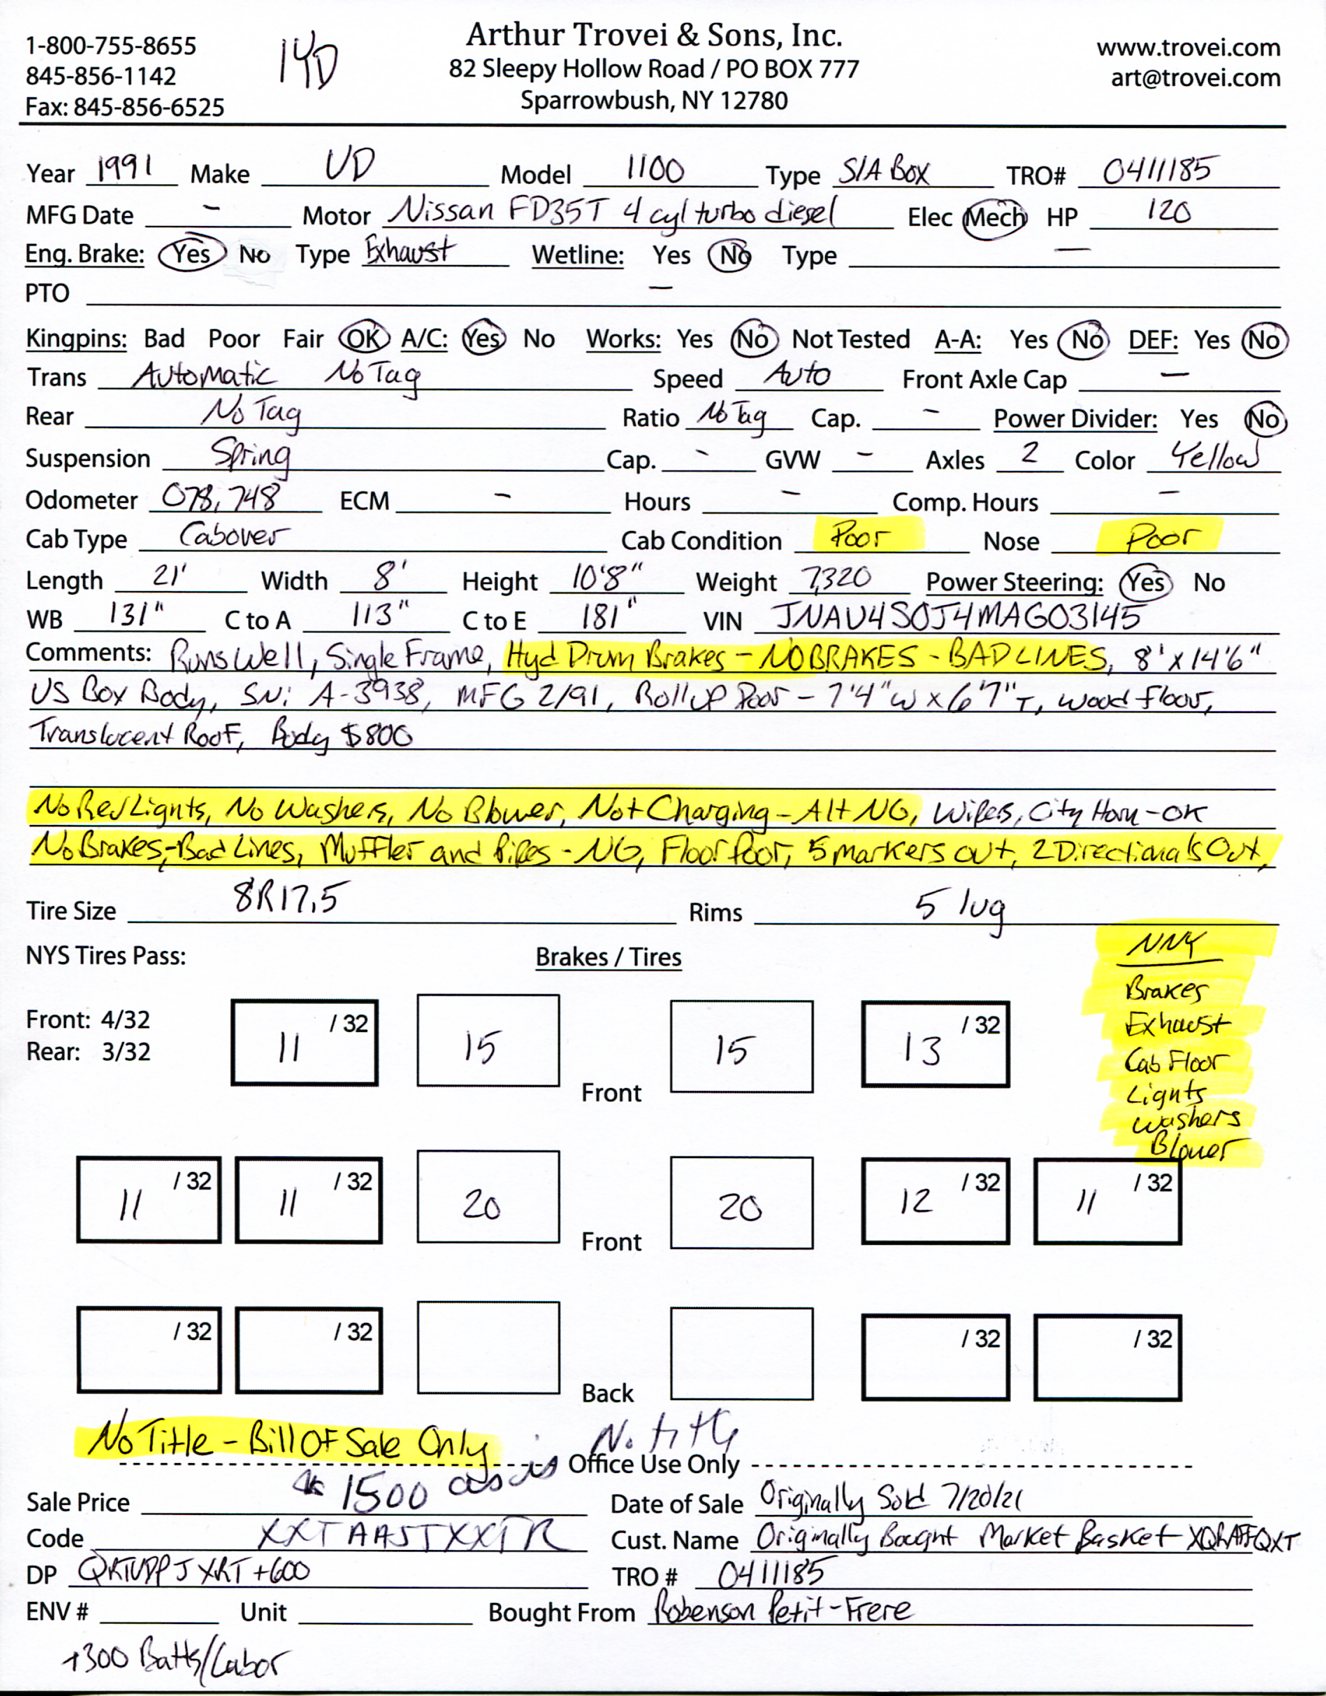 1-800-755-8655
845-856-1142
Fax: 845-856-6525
14D
Arthur Trovei & Sons, Inc.
82 Sleepy Hollow Road / PO BOX 777
Sparrowbush, NY 12780
www.trovei.com
art@trovei.com
Year 1991 Make UD Model 1100 Type S/A Box TRO# 0411185
MFG Date - Motor Nissan FD35T 4 cyl turbo diesel Elec Mech HP 120
Eng. Brake: Yes No Type Exhaust Wetline: Yes No Type -
PTO -
Kingpins: Bad Poor Fair OK A/C: Yes No Works: Yes No Not Tested A-A: Yes No DEF: Yes No
Trans Automatic No Tag Speed Auto Front Axle Cap -
Rear No Tag Ratio No Tag Cap. - Power Divider: Yes No
Suspension Spring Cap. - GVW - Axles 2 Color Yellow
Odometer 078,748 ECM - Hours - Comp. Hours -
Cab Type Cabover Cab Condition Poor Nose Poor
Length 21' Width 8' Height 10'8" Weight 7,320 Power Steering: Yes No
WB 131" C to A 113" C to E 181" VIN JNAU4S0J4MAG03145
Comments: Runs Well, Single Frame, Hyd Drum Brakes - NO BRAKES - BAD LINES, 8' x 14'6"
US Box Body, SN: A-3938, MFG 2/91, Rollup Door - 7'4"W x 6'7"T, wood floor,
Translucent Roof, Body $800
No Rev Lights, No Washers, No Blower, Not Charging - Alt NG, Wipers, City Horn - OK
No Brakes, - Bad Lines, Muffler and Pipes - NG, Floor Poor, 5 markers out, 2 Directionals Out,
Tire Size 8R17.5 Rims 5 lug
NYS Tires Pass: Brakes / Tires
Front: 4/32
Rear: 3/32
11 /32 15 Front 15 13 /32
NNY
Brakes
Exhaust
Cab Floor
Lights
Washers
Blower
11 /32 11 /32 20 Front 20 12 /32 11 /32
/32 /32 Back /32 /32
No Title - Bill Of Sale Only
No title
Office Use Only
Sale Price 1500 as is Date of Sale Originally Sold 7/20/21
Code XXTAAJTXXTR Cust. Name Originally Bought Market Basket
DP +600 TRO # 0411185
ENV # Unit Bought From Robenson Petit-Frere
+300 Batts/Labor